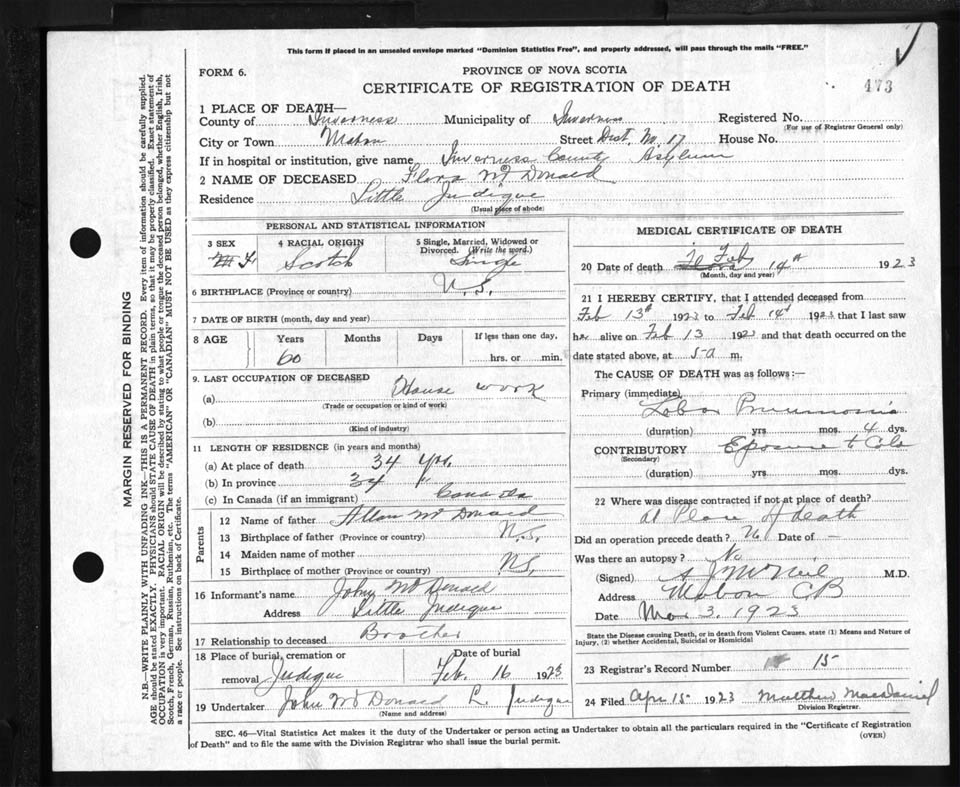 This form if placed in an unsealed envelope marked "Dominion Statistics Free", and properly addressed, will pass through the mails "FREE."
FORM 6.
PROVINCE OF NOVA SCOTIA
CERTIFICATE OF REGISTRATION OF DEATH
473
1 PLACE OF DEATH—
County of Inverness Municipality of Inverness Registered No.
(For use of Registrar General only)
City or Town Mabou Street Dist. No. 17 House No.
If in hospital or institution, give name Inverness County Asylum
2 NAME OF DECEASED Flora McDonald
Residence Little Judique
(Usual place of abode)
PERSONAL AND STATISTICAL INFORMATION
3 SEX F
4 RACIAL ORIGIN Scotch
5 Single, Married, Widowed or Divorced. (Write the word.) Single
6 BIRTHPLACE (Province or country) N.S.
7 DATE OF BIRTH (month, day and year)
8 AGE Years 60 Months Days If less than one day, hrs. or min.
9. LAST OCCUPATION OF DECEASED
(a) House work
(Trade or occupation or kind of work)
(b)
(Kind of industry)
11 LENGTH OF RESIDENCE (in years and months)
(a) At place of death 34 yrs.
(b) In province 34 "
(c) In Canada (if an immigrant) Canada
Parents
12 Name of father Allan McDonald
13 Birthplace of father (Province or country) N.S.
14 Maiden name of mother
15 Birthplace of mother (Province or country) N.S.
16 Informant's name John McDonald
Address Little Judique
17 Relationship to deceased Brother
18 Place of burial, cremation or removal Judique
Date of burial Feb. 16 1923
19 Undertaker John McDonald L. Judique
(Name and address)
MEDICAL CERTIFICATE OF DEATH
20 Date of death Feb 14th 1923
(Month, day and year)
21 I HEREBY CERTIFY, that I attended deceased from
Feb 13th 1923 to Feb 14th 1923 that I last saw
her alive on Feb 13 1923 and that death occurred on the
date stated above, at 5 a m.
The CAUSE OF DEATH was as follows:—
Primary (immediate)
Lobar Pneumonia
(duration) yrs. mos. 4 dys.
CONTRIBUTORY Eposure to Cold
(Secondary)
(duration) yrs. mos. dys.
22 Where was disease contracted if not at place of death?
at Place of death
Did an operation precede death? No Date of —
Was there an autopsy? No
(Signed) A J McNeil M.D.
Address Mabou CB
Date Mar 3. 1923
State the Disease causing Death, or in death from Violent Causes, state (1) Means and Nature of
Injury, (2) whether Accidental, Suicidal or Homicidal
23 Registrar's Record Number 15
24 Filed Apr 15 1923 Matthew MacDaniel
Division Registrar.
SEC. 46—Vital Statistics Act makes it the duty of the Undertaker or person acting as Undertaker to obtain all the particulars required in the "Certificate of Registration
of Death" and to file the same with the Division Registrar who shall issue the burial permit.
(OVER)
MARGIN RESERVED FOR BINDING
N.B.—WRITE PLAINLY WITH UNFADING INK—THIS IS A PERMANENT RECORD. Every item of information should be carefully supplied.
AGE should be stated EXACTLY. PHYSICIANS should STATE CAUSE OF DEATH in plain terms, so that it may be properly classified. Exact statement of
OCCUPATION is very important. RACIAL ORIGIN will be described by stating to what people or tongue the deceased person belonged, whether English, Irish,
Scotch, French, German, Russian, Ruthenian, etc. The terms "AMERICAN" OR "CANADIAN" MUST NOT BE USED as they express citizenship but not
a race or people. See instructions on back of Certificate.